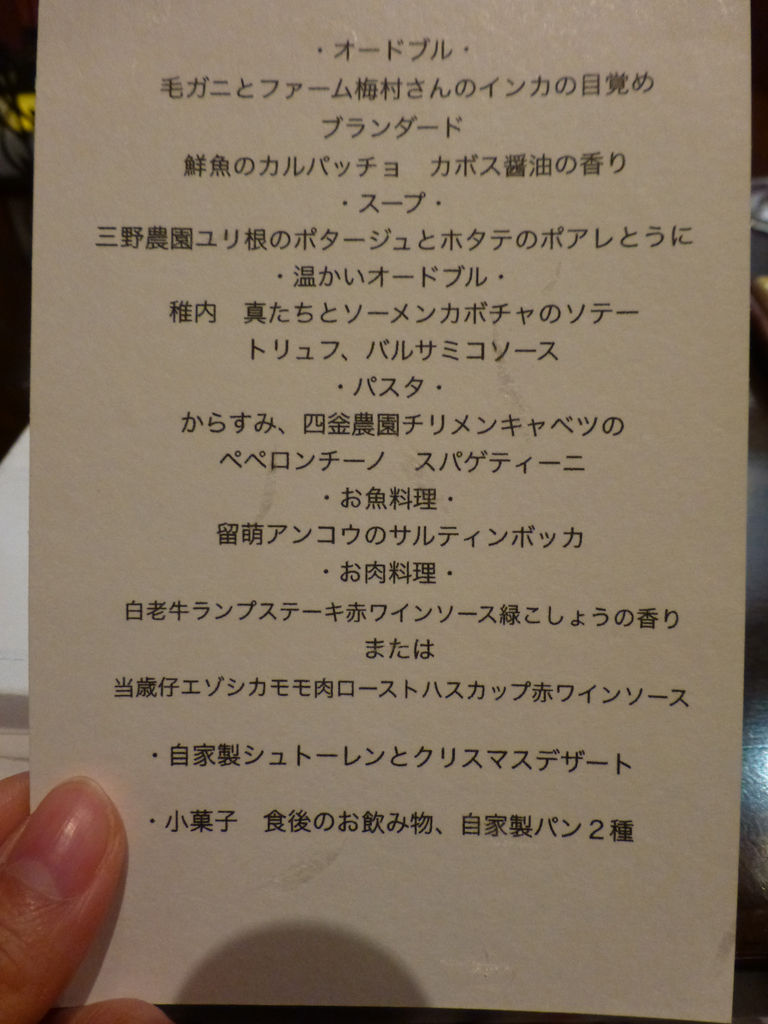 ・オードブル・
毛ガニとファーム梅村さんのインカの目覚め
ブランダード
鮮魚のカルパッチョ　カボス醤油の香り
・スープ・
三野農園ユリ根のポタージュとホタテのポアレとうに
・温かいオードブル・
稚内　真たちとソーメンカボチャのソテー
トリュフ、バルサミコソース
・パスタ・
からすみ、四釜農園チリメンキャベツの
ペペロンチーノ　スパゲティーニ
・お魚料理・
留萌アンコウのサルティンボッカ
・お肉料理・
白老牛ランプステーキ赤ワインソース緑こしょうの香り
または
当歳仔エゾシカモモ肉ローストハスカップ赤ワインソース
・自家製シュトーレンとクリスマスデザート
・小菓子　食後のお飲み物、自家製パン２種